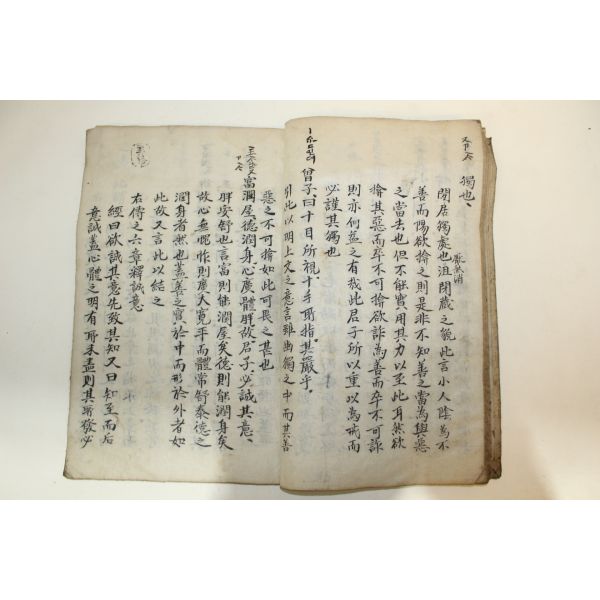 獨也
閒居獨處也沮閉藏之貌此言小人陰為不
善而陽欲揜之則是非不知善之當為與惡
之當去也但不能實用其力以至此耳然欲
揜其惡而卒不可揜欲詐為善而卒不可詐
則亦何益之有哉此君子所以重以為戒而
必謹其獨也
曾子曰十目所視十手所指其嚴乎
引此以明上文之意言雖幽獨之中而其善
惡之不可揜如此可畏之甚也
富潤屋德潤身心廣體胖故君子必誠其意
胖安舒也言富則能潤屋矣德則能潤身矣
故心無愧怍則廣大寬平而體常舒泰德之
潤身者然也盖善之實於中而形於外者如
此故又言此以結之
右傳之六章釋誠意
經曰欲誠其意先致其知又曰知至而后
意誠盖心體之明有所未盡則其所發必